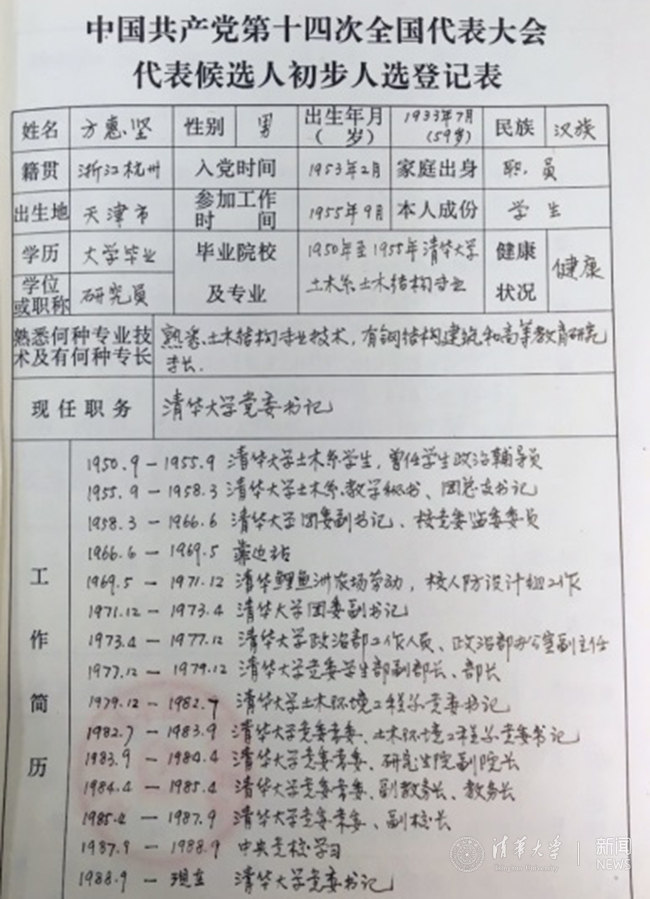 中国共产党第十四次全国代表大会
代表候选人初步人选登记表
姓名 方惠坚 性别 男 出生年月(　岁) 1933年7月(59岁) 民族 汉族
籍贯 浙江杭州 入党时间 1953年2月 家庭出身 职员
出生地 天津市 参加工作时间 1955年9月 本人成份 学生
学历 大学毕业 毕业院校及专业 1950年至1955年清华大学土木系土木结构专业 健康状况 健康
学位或职称 研究员
熟悉何种专业技术及有何种专长 熟悉土木结构专业技术，有钢结构建筑和高等教育研究专长.
现任职务 清华大学党委书记
工作简历
1950.9－1955.9 清华大学土木系学生，曾任学生政治辅导员
1955.9－1958.3 清华大学土木系教学秘书、团总支书记
1958.3－1966.6 清华大学团委副书记、校党委监委委员
1966.6－1969.5 靠边站
1969.5－1971.12 清华鲤鱼洲农场劳动，校人防设计组工作
1971.12－1973.4 清华大学团委副书记
1973.4－1977.12 清华大学政治部工作人员、政治部办公室副主任
1977.12－1979.12 清华大学党委学生部副部长、部长
1979.12－1982.7 清华大学土木环境工程系党委书记
1982.7－1983.9 清华大学党委常委、土木环境工程系党委书记
1983.9－1984.4 清华大学党委常委、研究生院副院长
1984.4－1985.4 清华大学党委常委、副教务长、教务长
1985.4－1987.9 清华大学党委常委、副校长
1987.9－1988.9 中央党校学习
1988.9－现在 清华大学党委书记
清华大学 新闻
Tsinghua University NEWS